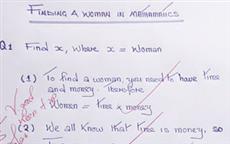 FINDING A WOMAN IN MATHEMATICS
Q1 Find x, where x = Woman
(1) To find a woman, you need to have time
and money. Therefore
Women = time x money
(2) We all know that time is money, so